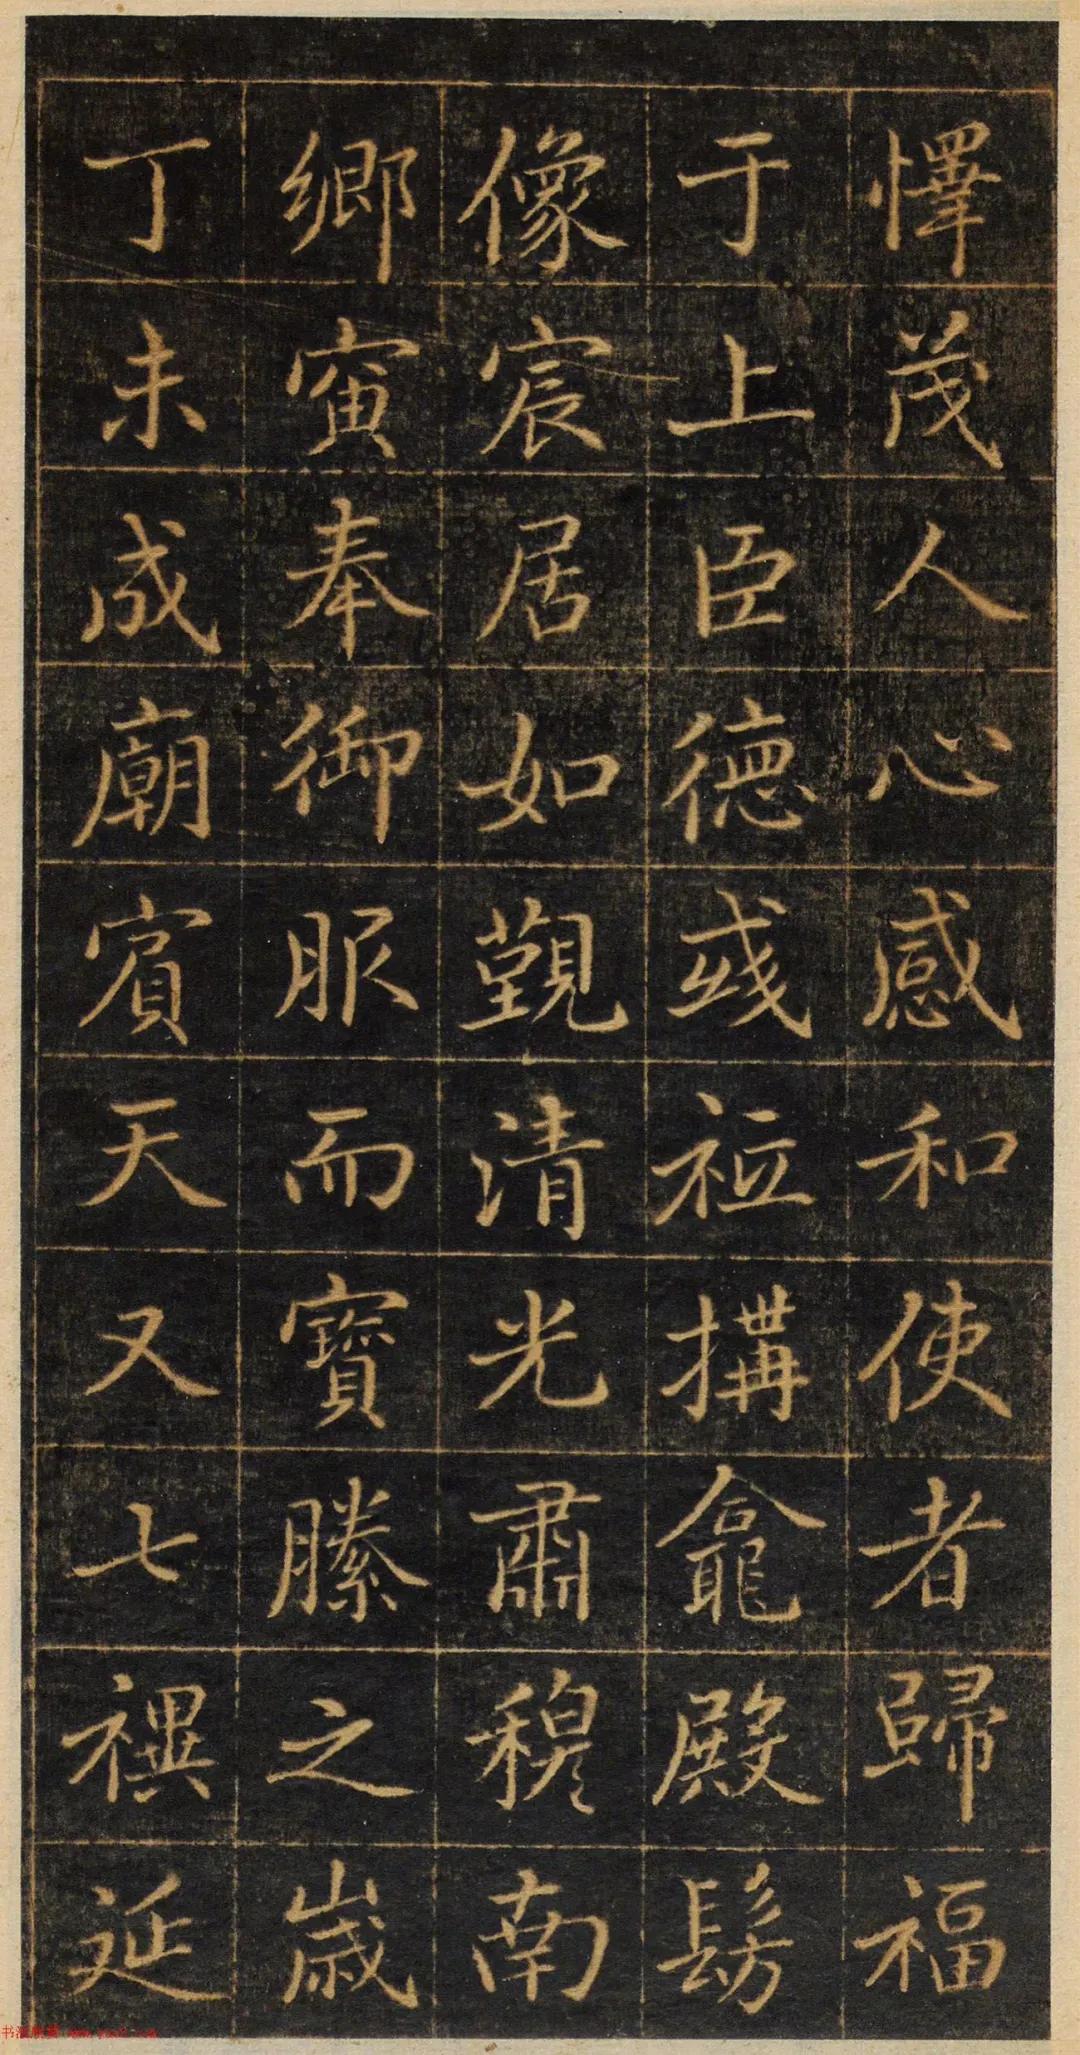 懌茂人心感和使者歸福
于上臣德或祉搆龕殿髣
像宸居如覲清光肅穆南
鄉寅奉御服而寶縢之歲
丁未成廟賓天又七禩延